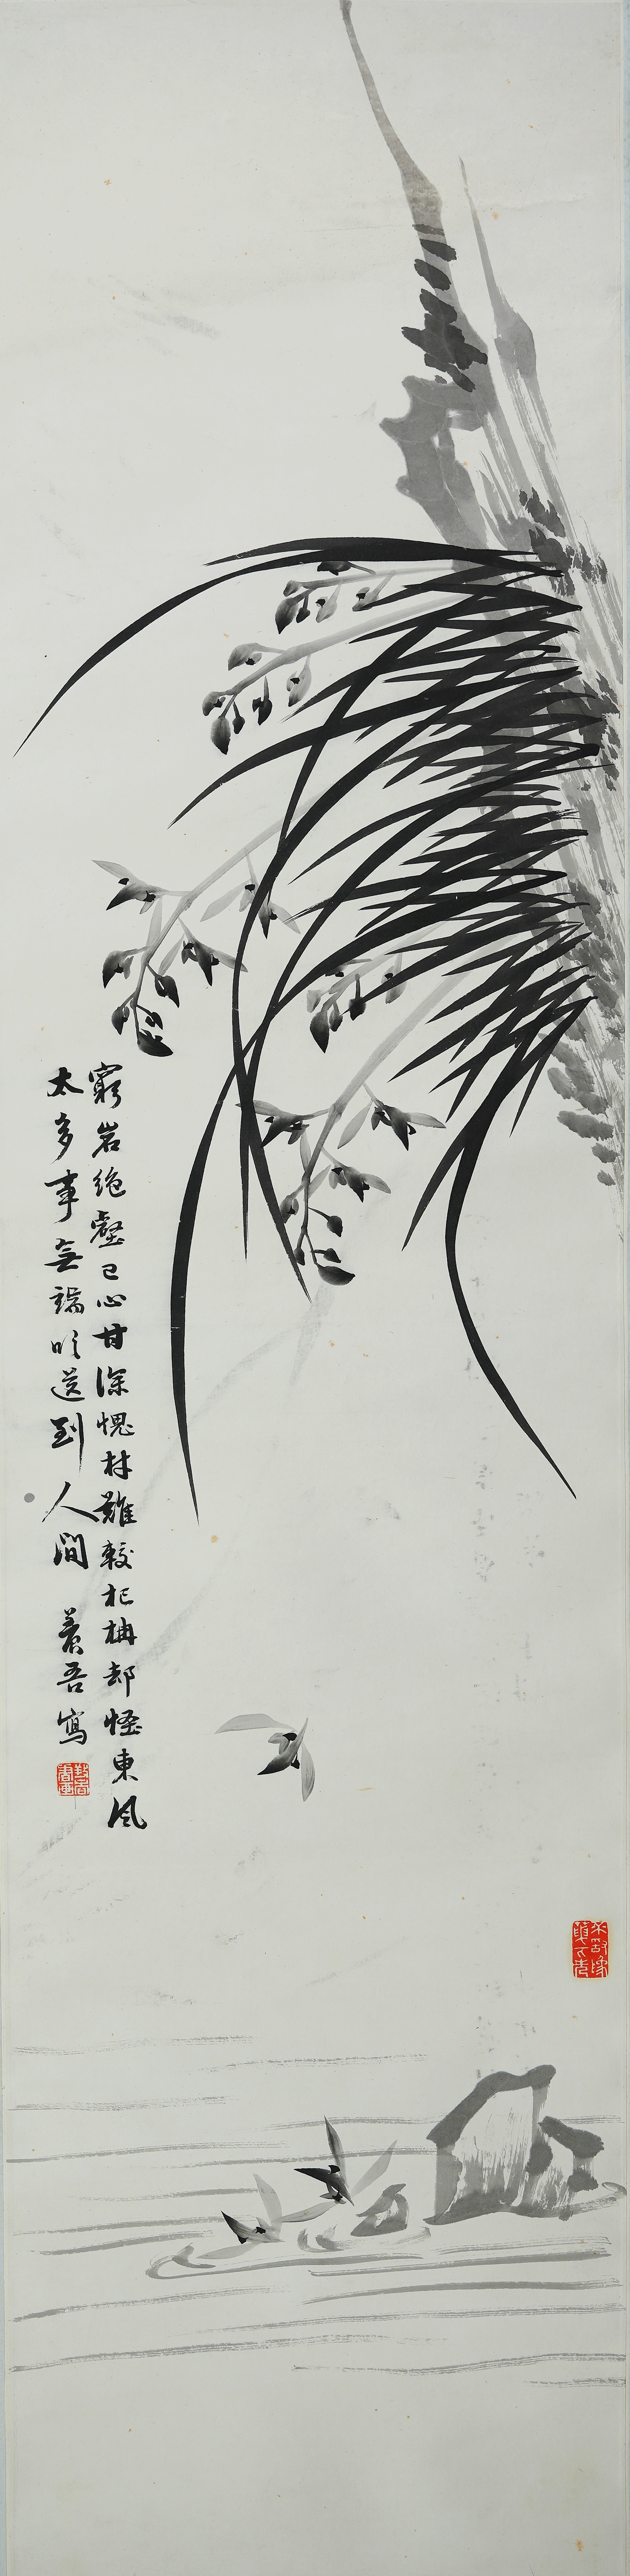 窮岩絶壑已心甘深愧材難較杞柟却怪東風
太多事無端吹送到人間 養吾寫